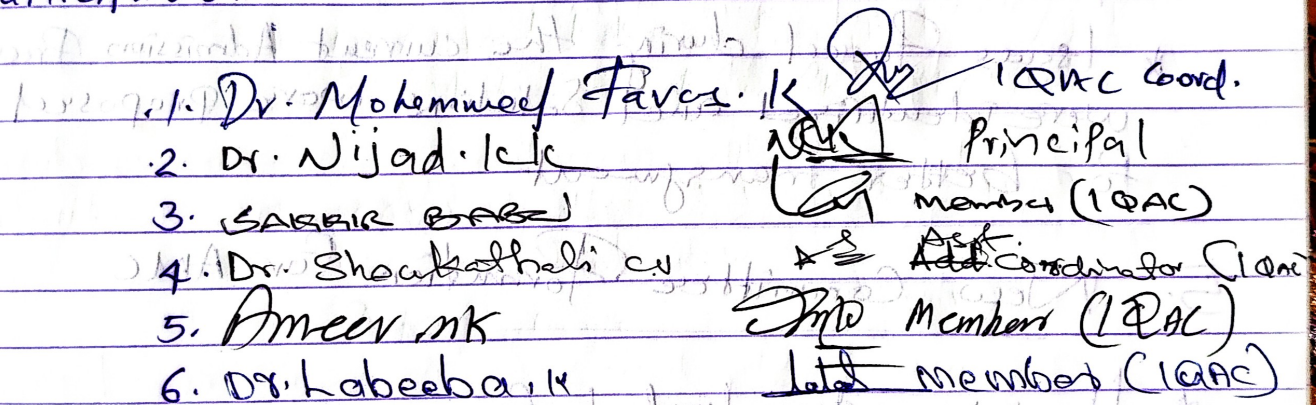 1. Dr. Mohemmed Faras. K IQAC Coord.
2. Dr. Nijad. KK Principal
3. SABBIR BABU Member (IQAC)
4. Dr. Shoukathali CV Asst. Coordinator (IQAC)
5. Ameer NK Member (IQAC)
6. Dr. Labeeba. K Member (IQAC)